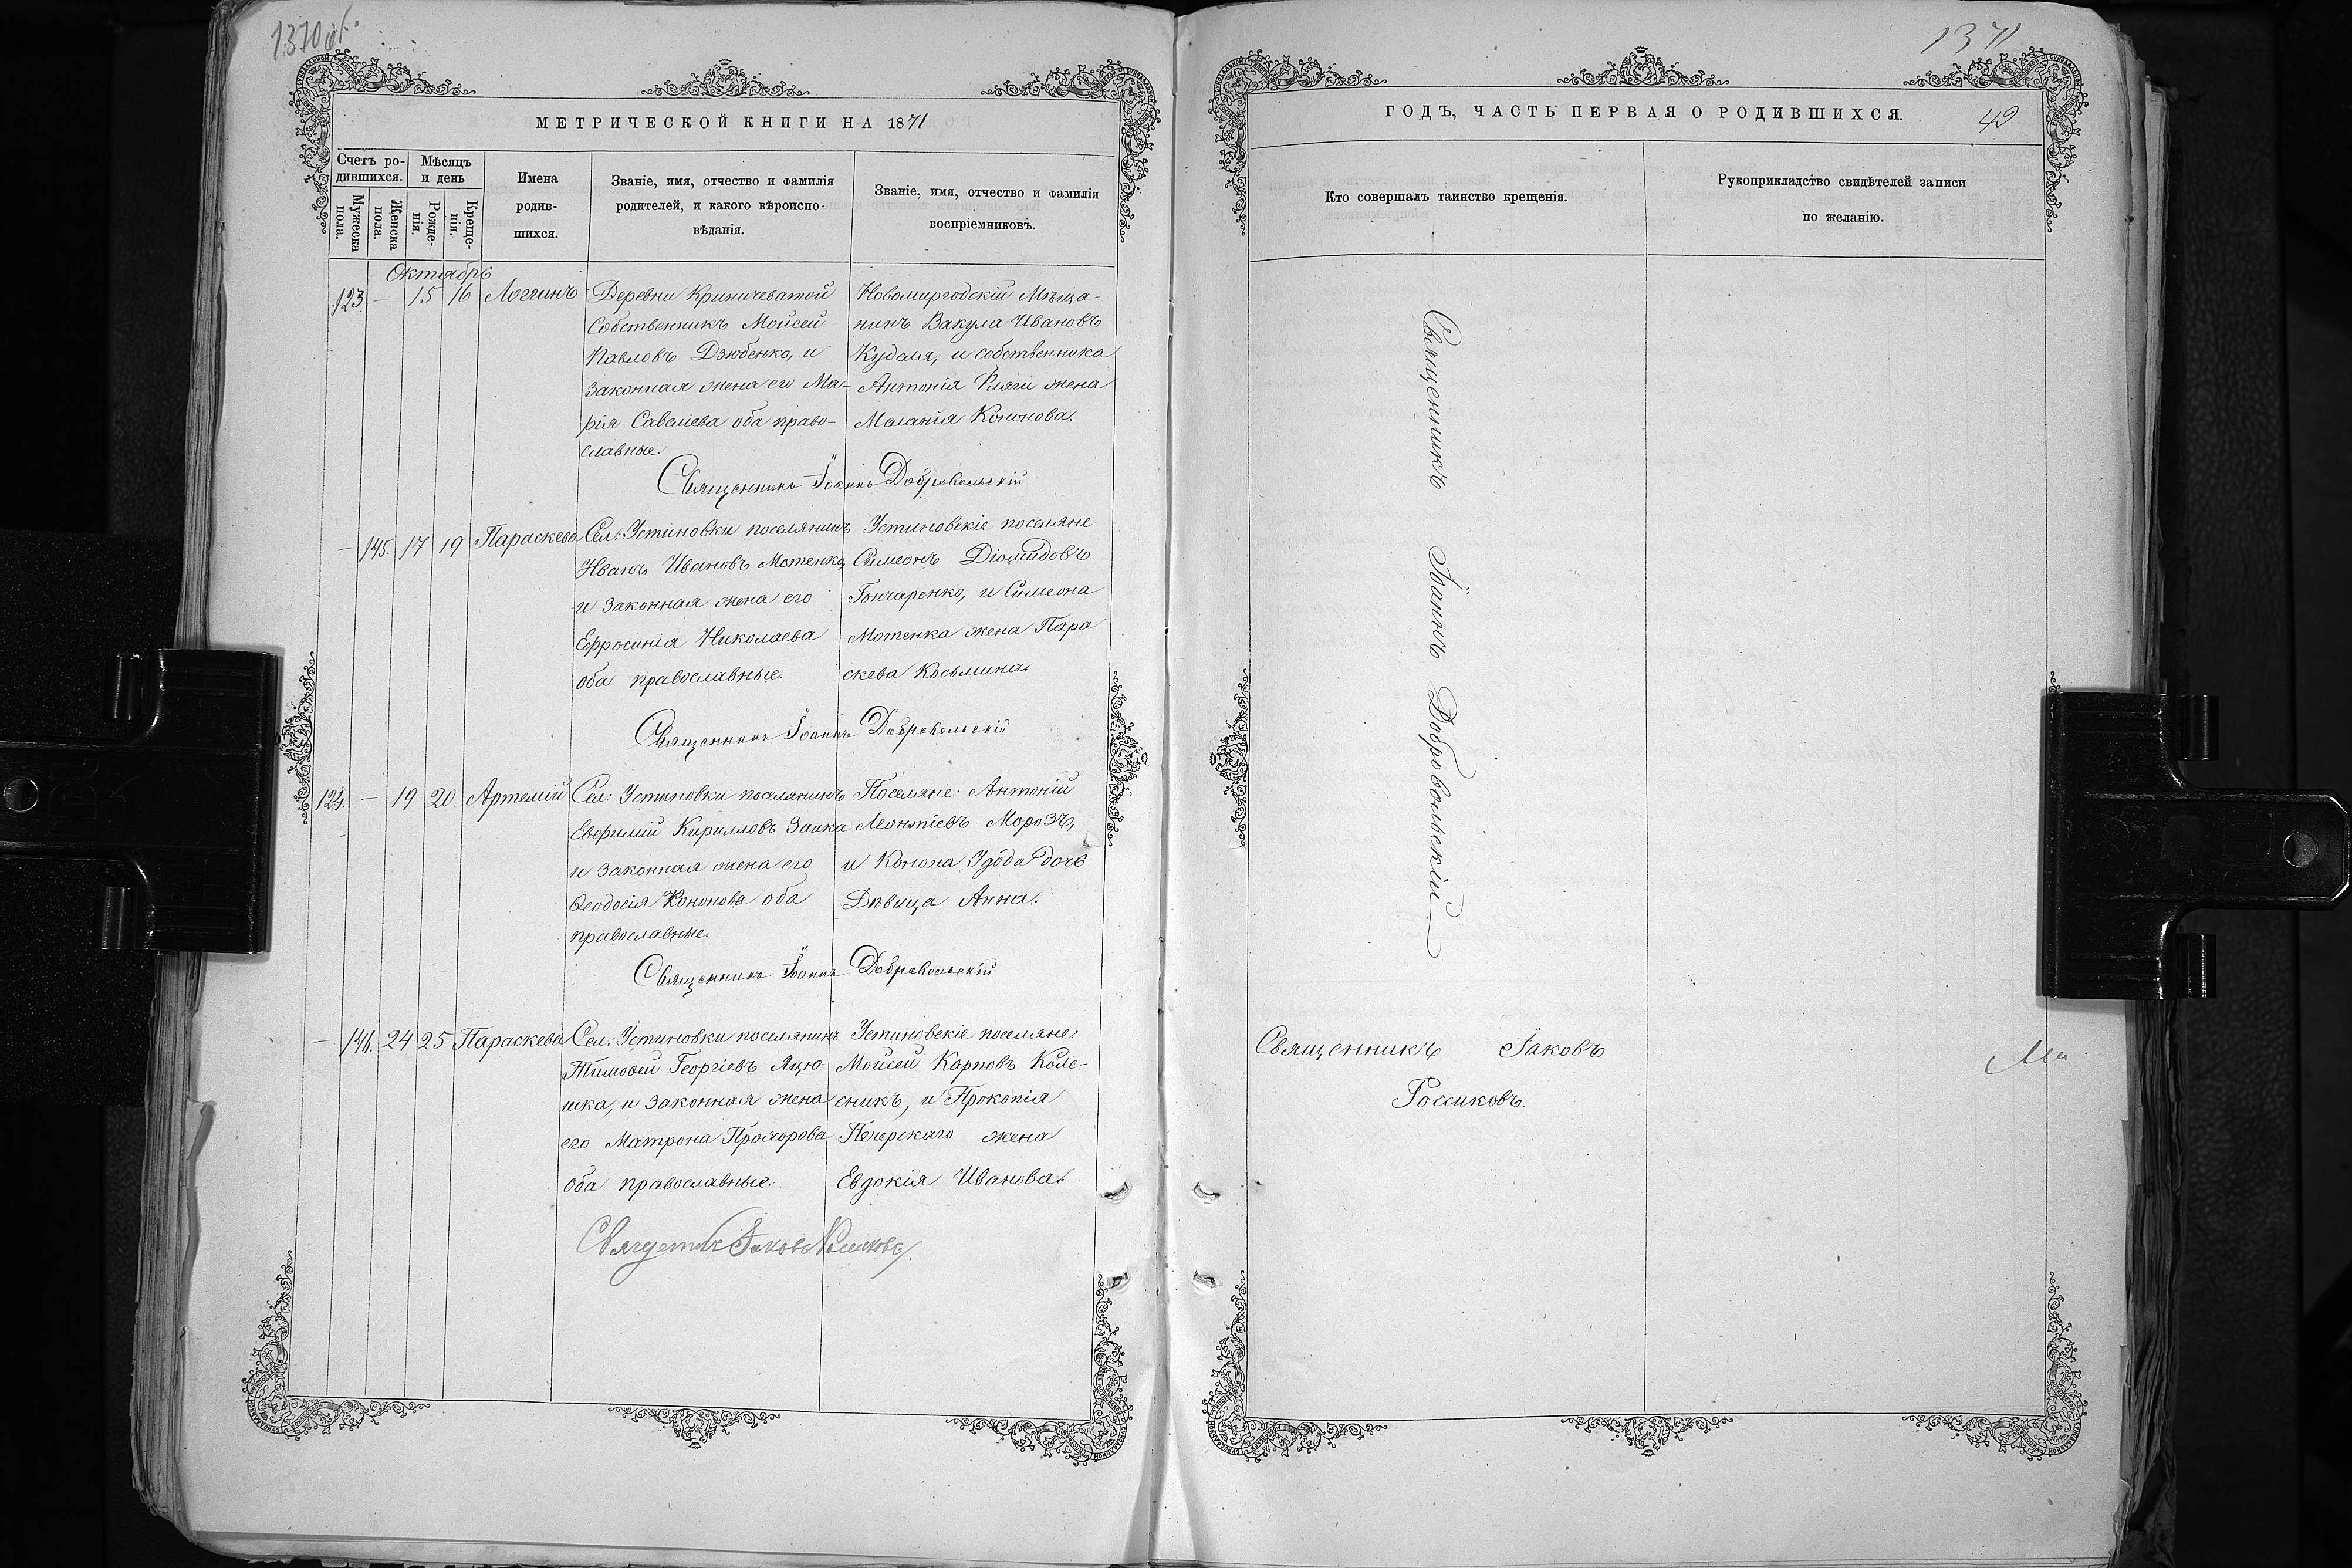 1370 об.
МЕТРИЧЕСКОЙ КНИГИ НА 1871
Счетъ ро-
дившихся.
Мѣсяцъ
и день
Мужеска
пола.
Женска
пола.
Рожде-
нія.
Креще-
нія.
Имена
родив-
шихся.
Званіе, имя, отчество и фамилія
родителей, и какого вѣроиспо-
вѣданія.
Званіе, имя, отчество и фамилія
воспріемниковъ.
Октябрь
123. — 15 16 Логгинъ
Деревни Криничеватой
Собственникъ Мойсей
Павловъ Дзюбенко, и
законная жена его Ма-
рія Савеліева оба право-
славные.
Новомиргодскій Мѣща-
нинъ Вакула Ивановъ
Кудаля, и собственника
Антонія жена
Меланія Кононова.
Священникъ Іоаннъ Добровольскій
— 145. 17 19 Параскева
Сел: Устиновки поселянинъ
Иванъ Ивановъ Мотенко,
и законная жена его
Ефросинія Николаева
оба православные.
Устиновскіе поселяне
Симеонъ Діомидовъ
Гончаренко, и Симеона
Мотенка жена Пара
скева Косьмина.
Священникъ Іоаннъ Добровольскій
124. — 19 20 Артемій
Сел: Устиновки поселянинъ
Евфимій Кирилловъ Заика
и законная жена его
Ѳеодосія Кононова оба
православные.
Поселяне: Антоній
Леонтіевъ Морозъ,
и Конона Удода дочь
Дѣвица Анна.
Священникъ Іоаннъ Добровольскій
— 146. 24 25 Параскева
Сел: Устиновки поселянинъ
Тимоѳей Георгіевъ Яцю-
шка, и законная жена
его Матрона Прохорова
оба православные.
Устиновскіе поселяне:
Мойсей Карповъ Коле-
сникъ, и Прокопія
Печерскаго жена
Евдокія Иванова.
Священникъ Іаковъ Россиковъ.
1371
ГОДЪ, ЧАСТЬ ПЕРВАЯ О РОДИВШИХСЯ.
49
Кто совершалъ таинство крещенія.
Рукоприкладство свидѣтелей записи
по желанію.
Священникъ Іоаннъ Добровольскій
Священникъ Іаковъ
Россиковъ.